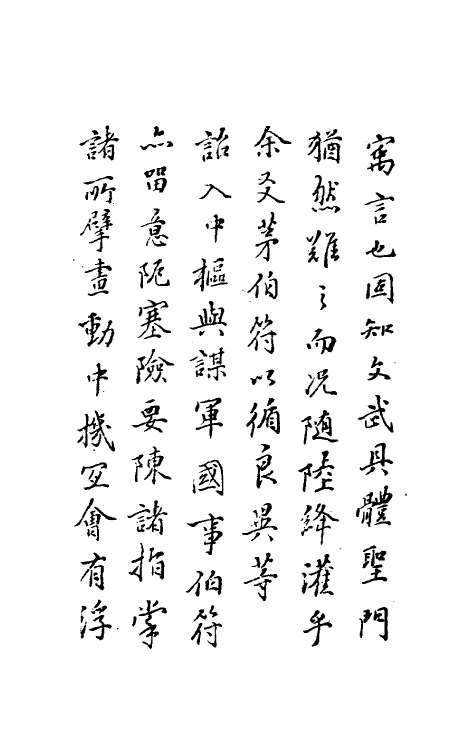 寓言也固知文武具體聖門
猶然難之而况随陸絳灌乎
余友茅伯符以循良異等
詔入中樞與謀軍國事伯符
亦留意阨塞險要陳諸指掌
諸所擘畫動中機宜會有浮